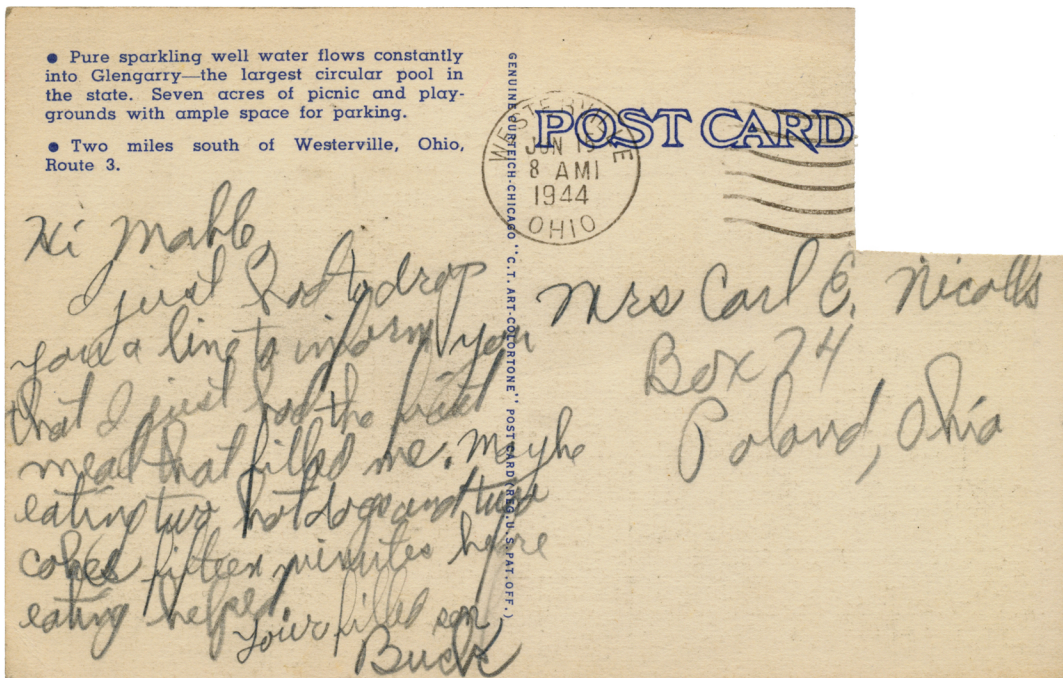 ● Pure sparkling well water flows constantly
into Glengarry—the largest circular pool in
the state. Seven acres of picnic and play-
grounds with ample space for parking.
● Two miles south of Westerville, Ohio,
Route 3.
GENUINE CURTEICH-CHICAGO "C.T. ART-COLORTONE" POST CARD (REG. U.S. PAT. OFF.)
POST CARD
WESTERVILLE
JUN
8 AM
1944
OHIO
Hi
I just had to drop
you a line to inform you
that I just had the first
meal that filled me. Maybe
eating two hot dogs and two
cokes fifteen minutes before
eating helped.
Your filled son,
Buck
Mrs Carl E. Nicolls
Box 74
Poland, Ohio